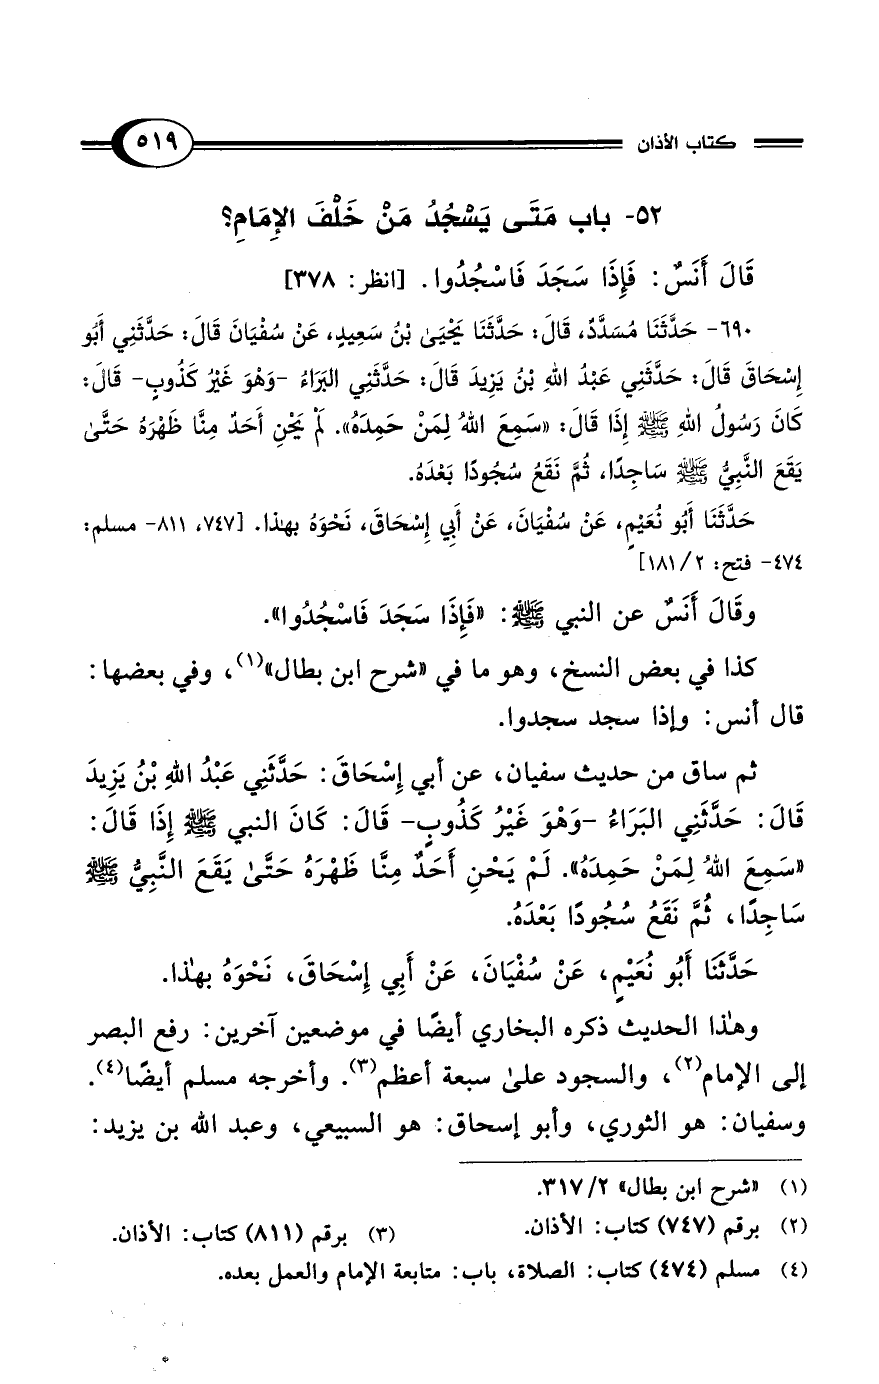 كتاب الأذان ٥١٩
٥٢- باب مَتَى يَسْجُدُ مَنْ خَلْفَ الإِمَامِ؟
قَالَ أَنَسٌ: فَإِذَا سَجَدَ فَاسْجُدُوا. [انظر: ٣٧٨]
٦٩٠- حَدَّثَنَا مُسَدَّدٌ، قَالَ: حَدَّثَنَا يَحْيَىٰ بْنُ سَعِيدٍ، عَنْ سُفْيَانَ قَالَ: حَدَّثَنِي أَبُو
إِسْحَاقَ قَالَ: حَدَّثَنِي عَبْدُ اللهِ بْنُ يَزِيدَ قَالَ: حَدَّثَنِي البَرَاءُ -وَهُوَ غَيْرُ كَذُوبٍ- قَالَ:
كَانَ رَسُولُ اللهِ ﷺ إِذَا قَالَ: «سَمِعَ اللهُ لِمَنْ حَمِدَهُ». لَمْ يَحْنِ أَحَدٌ مِنَّا ظَهْرَهُ حَتَّىٰ
يَقَعَ النَّبِيُّ ﷺ سَاجِدًا، ثُمَّ نَقَعُ سُجُودًا بَعْدَهُ.
حَدَّثَنَا أَبُو نُعَيْمٍ، عَنْ سُفْيَانَ، عَنْ أَبِي إِسْحَاقَ، نَحْوَهُ بهٰذا. [٧٤٧، ٨١١- مسلم:
٤٧٤- فتح: ٢/ ١٨١]
وقَالَ أَنَسٌ عن النبي ﷺ: «فَإِذَا سَجَدَ فَاسْجُدُوا».
كذا في بعض النسخ، وهو ما في «شرح ابن بطال»(١)، وفي بعضها:
قال أنس: وإذا سجد سجدوا.
ثم ساق من حديث سفيان، عن أبي إِسْحَاقَ: حَدَّثَنِي عَبْدُ اللهِ بْنُ يَزِيدَ
قَالَ: حَدَّثَنِي البَرَاءُ -وَهُوَ غَيْرُ كَذُوبٍ- قَالَ: كَانَ النبي ﷺ إِذَا قَالَ:
«سَمِعَ اللهُ لِمَنْ حَمِدَهُ». لَمْ يَحْنِ أَحَدٌ مِنَّا ظَهْرَهُ حَتَّىٰ يَقَعَ النَّبِيُّ ﷺ
سَاجِدًا، ثُمَّ نَقَعُ سُجُودًا بَعْدَهُ.
حَدَّثَنَا أَبُو نُعَيْمٍ، عَنْ سُفْيَانَ، عَنْ أَبِي إِسْحَاقَ، نَحْوَهُ بهٰذا.
وهٰذا الحديث ذكره البخاري أيضًا في موضعين آخرين: رفع البصر
إلى الإمام(٢)، والسجود علىٰ سبعة أعظم(٣). وأخرجه مسلم أيضًا(٤).
وسفيان: هو الثوري، وأبو إسحاق: هو السبيعي، وعبد الله بن يزيد:
(١) «شرح ابن بطال» ٢/ ٣١٧.
(٢) برقم (٧٤٧) كتاب: الأذان. (٣) برقم (٨١١) كتاب: الأذان.
(٤) مسلم (٤٧٤) كتاب: الصلاة، باب: متابعة الإمام والعمل بعده.